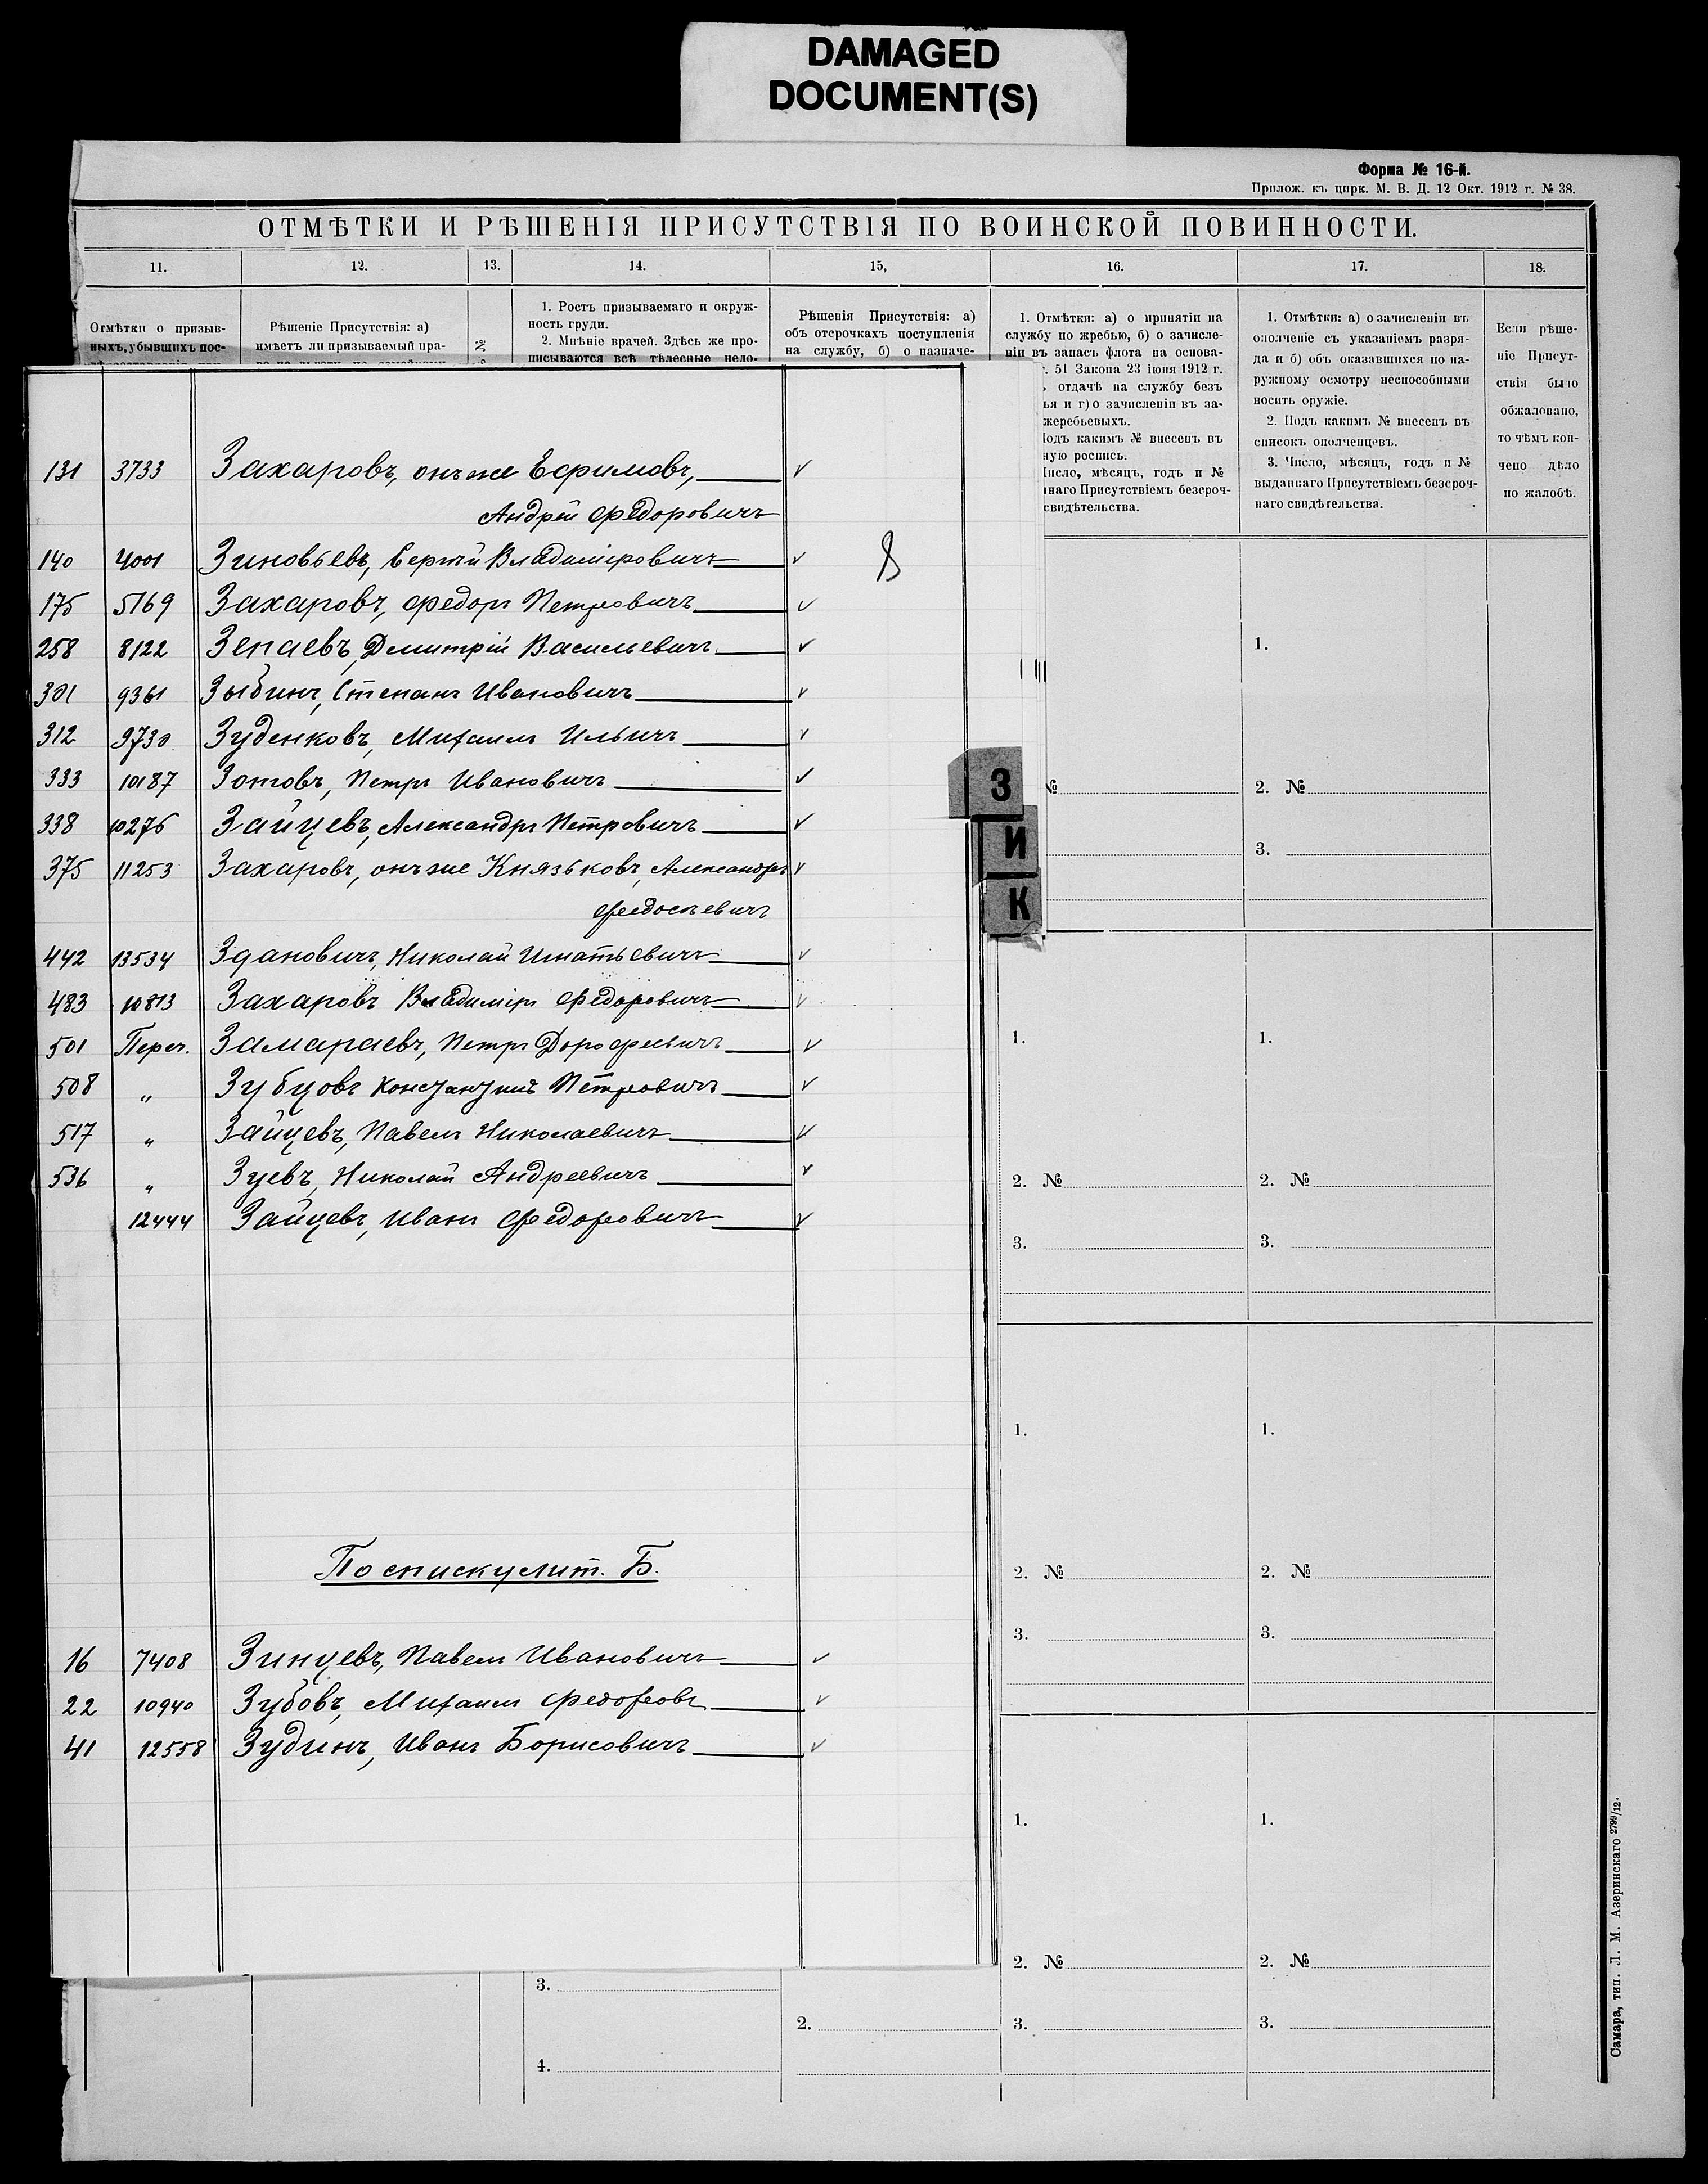 DAMAGED
DOCUMENT(S)
Форма № 16-й.
Прилож. къ цирк. М. В. Д. 12 Окт. 1912 г. № 38.
ОТМѢТКИ И РѢШЕНІЯ ПРИСУТСТВІЯ ПО ВОИНСКОЙ ПОВИННОСТИ.
11. 12. 13. 14. 15, 16. 17. 18.
Отмѣтки о призыв-
ныхъ, убывшихъ пос-
Рѣшеніе Присутствія: а)
имѣетъ ли призываемый пра-
№
1. Ростъ призываемаго и окруж-
ность груди.
2. Мнѣніе врачей. Здѣсь же про-
писываются всѣ тѣлесные недо-
Рѣшенія Присутствія: а)
объ отсрочкахъ поступленія
на службу, б) о назначе-
1. Отмѣтки: а) о принятіи на
службу по жребью, б) о зачисле-
ніи въ запасъ флота на основа-
. 51 Закона 23 іюня 1912 г.
отдачѣ на службу безъ
ья и г) о зачисленіи въ за-
жеребьевыхъ.
Подъ какимъ № внесенъ въ
ную роспись.
Число, мѣсяцъ, годъ и №
наго Присутствіемъ безсроч-
свидѣтельства.
1. Отмѣтки: а) о зачисленіи въ
ополченіе съ указаніемъ разря-
да и б) объ оказавшихся по на-
ружному осмотру неспособными
носить оружіе.
2. Подъ какимъ № внесенъ въ
списокъ ополченцевъ.
3. Число, мѣсяцъ, годъ и №
выданнаго Присутствіемъ безсроч-
наго свидѣтельства.
Если рѣше-
ніе Присут-
ствія было
обжаловано,
то чѣмъ кон-
чено дѣло
по жалобѣ.
131 3733 Захаровъ, онъ же Ефимовъ,
Андрей Федоровичъ
140 4001 Зиновьевъ, Сергѣй Владиміровичъ
175 5169 Захаровъ, Федоръ Петровичъ
258 8122 Зепаевъ, Дмитрій Васильевичъ
301 9361 Зыбинъ, Степанъ Ивановичъ
312 9730 Зуденковъ, Михаилъ Ильичъ
333 10187 Зотовъ, Петръ Ивановичъ
338 10276 Зайцевъ, Александръ Петровичъ
375 11253 Захаровъ, онъ же Князьковъ, Александръ
Федосѣевичъ
442 13534 Здановичъ, Николай Игнатьевичъ
483 10813 Захаровъ Владиміръ Федоровичъ
501 Переч. Замараевъ, Петръ Дорофеевичъ
508 " Зубцовъ Константинъ Петровичъ
517 " Зайцевъ, Павелъ Николаевичъ
536 " Зуевъ, Николай Андреевичъ
12444 Зайцевъ, Иванъ Федоровичъ
По списку лит. Б.
16 7408 Зинцевъ, Павелъ Ивановичъ
22 10940 Зубовъ, Михаилъ Федоровъ
41 12558 Зудинъ, Иванъ Борисовичъ
З
И
К
1.
№ 2. №
3.
1. 1.
2. № 2. №
3. 3.
1. 1.
2. № 2. №
3. 3.
1. 1.
2. № 2. №
3.
2. 3. 3.
4.
Самара, тип. Л. М. Азеринскаго 2799/12.